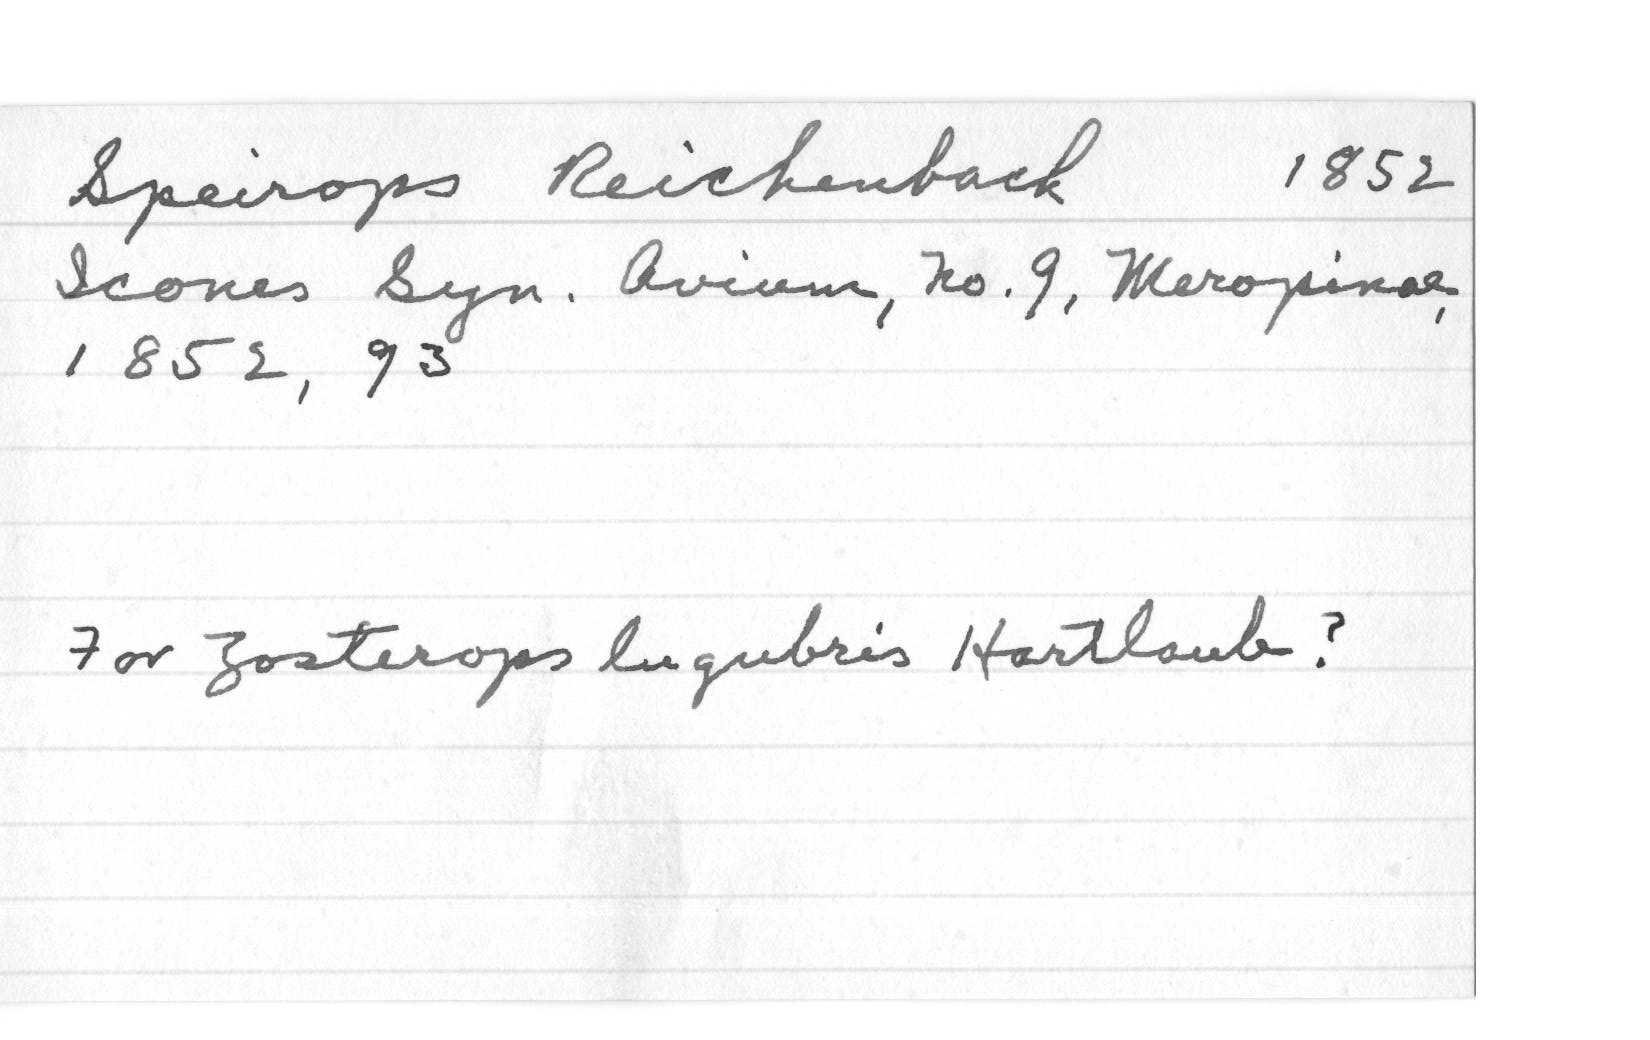 Speirops Reichenbach 1852
Icones Syn. Avium, No. 9, Meropinae,
1852, 93
For Zosterops lugubris Hartlaub?